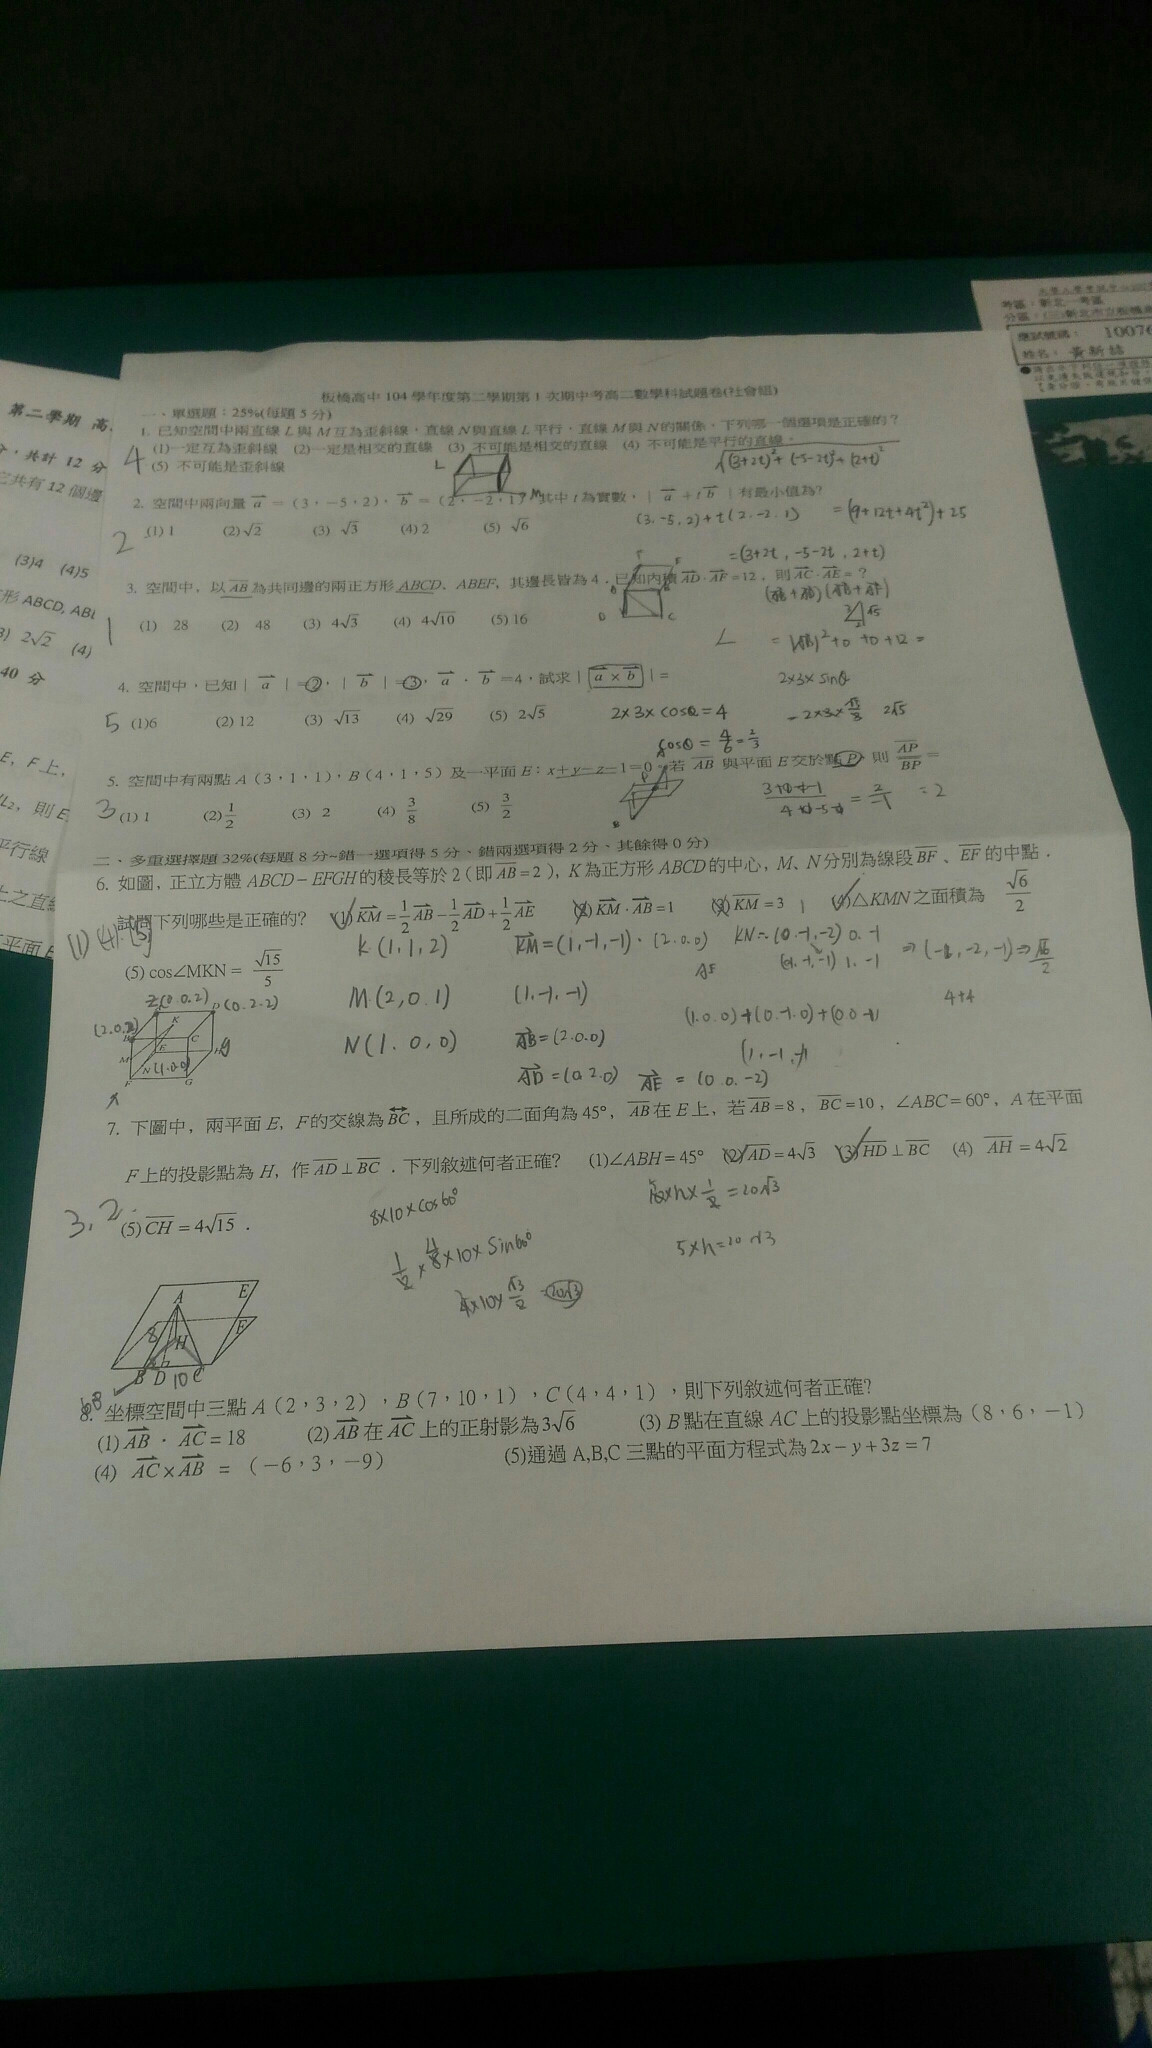 板橋高中 104 學年度第二學期第 1 次期中考高二數學科試題卷(社會組)
一、單選題：25%(每題 5 分)
1. 已知空間中兩直線 L 與 M 互為歪斜線，直線 N 與直線 L 平行，直線 M 與 N 的關係，下列哪一個選項是正確的？
4 (1)一定互為歪斜線 (2)一定是相交的直線 (3) 不可能是相交的直線 (4) 不可能是平行的直線．
(5) 不可能是歪斜線
√(3+2t)²+(-5-2t)²+(2+t)²
2. 空間中兩向量 a = (3，-5，2)，b = (2，-2，1)，其中 t 為實數，| a + t b | 有最小值為?
(3,-5,2)+t(2,-2,1) = (9+12t+4t²)+25
2 (1) 1 (2)√2 (3) √3 (4) 2 (5) √6
=(3+2t, -5-2t, 2+t)
3. 空間中，以 AB 為共同邊的兩正方形 ABCD、ABEF，其邊長皆為 4．已知內積 AD．AF=12，則 AC．AE=？
1 (1) 28 (2) 48 (3) 4√3 (4) 4√10 (5) 16
= |AB|²+0+0+12=
4. 空間中，已知| a |=2，| b |=3，a．b=4，試求| a × b |=
2×3×sinθ
5 (1)6 (2) 12 (3) √13 (4) √29 (5) 2√5
2×3×cosθ=4
2√5
cosθ = 4/6 = 2/3
5. 空間中有兩點 A（3，1，1），B（4，1，5）及一平面 E：x+y-z-1=0．若 AB 與平面 E 交於點 P，則 AP/BP =
3 (1) 1 (2) 1/2 (3) 2 (4) 3/8 (5) 3/2
= 2
二、多重選擇題 32%(每題 8 分~錯一選項得 5 分、錯兩選項得 2 分、其餘得 0 分)
6. 如圖，正立方體 ABCD－EFGH 的稜長等於 2（即 AB=2），K 為正方形 ABCD 的中心，M、N 分別為線段 BF、EF 的中點．
試問下列哪些是正確的? (1) KM = 1/2 AB - 1/2 AD + 1/2 AE (2) KM．AB=1 (3) KM=3 (4) △KMN 之面積為 √6/2
(1) (4) (5)
K(1,1,2) KM=(1,-1,-1)．(2.0.0) KN=(0.-1,-2)
(5) cos∠MKN = √15/5
M(2,0.1) (1,-1,-1)
4+4
N(1.0,0) AB=(2.0.0) (1.0.0)+(0.-1.0)+(0.0-1)
(1,-1,-1)
AD=(0.2.0) AE = (0.0.-2)
7. 下圖中，兩平面 E，F 的交線為 BC，且所成的二面角為 45°，AB 在 E 上，若 AB=8，BC=10，∠ABC=60°，A 在平面
F 上的投影點為 H，作 AD⊥BC．下列敘述何者正確? (1)∠ABH=45° (2) AD=4√3 (3) HD⊥BC (4) AH=4√2
3, 2. (5) CH=4√15．
8×10×cos60°
1/2×8×10×Sin60°
5×h=20√3
4×10×√3/2=20√3
A E 8 H F B D 10 C
8. 坐標空間中三點 A（2，3，2），B（7，10，1），C（4，4，1），則下列敘述何者正確?
(1) AB．AC=18 (2) AB 在 AC 上的正射影為 3√6 (3) B 點在直線 AC 上的投影點坐標為（8，6，－1）
(4) AC×AB =（－6，3，－9） (5)通過 A,B,C 三點的平面方程式為 2x－y+3z=7
第二學期 高
分，共計 12 分
它共有 12 個邊
(3)4 (4)5
形 ABCD, AB
2√2 (4)
40 分
E，F 上，
L₂，則 E
平行線
上之直線
平面 E
考區：新北一考區
應試號碼： 10076
姓名： 黃新結